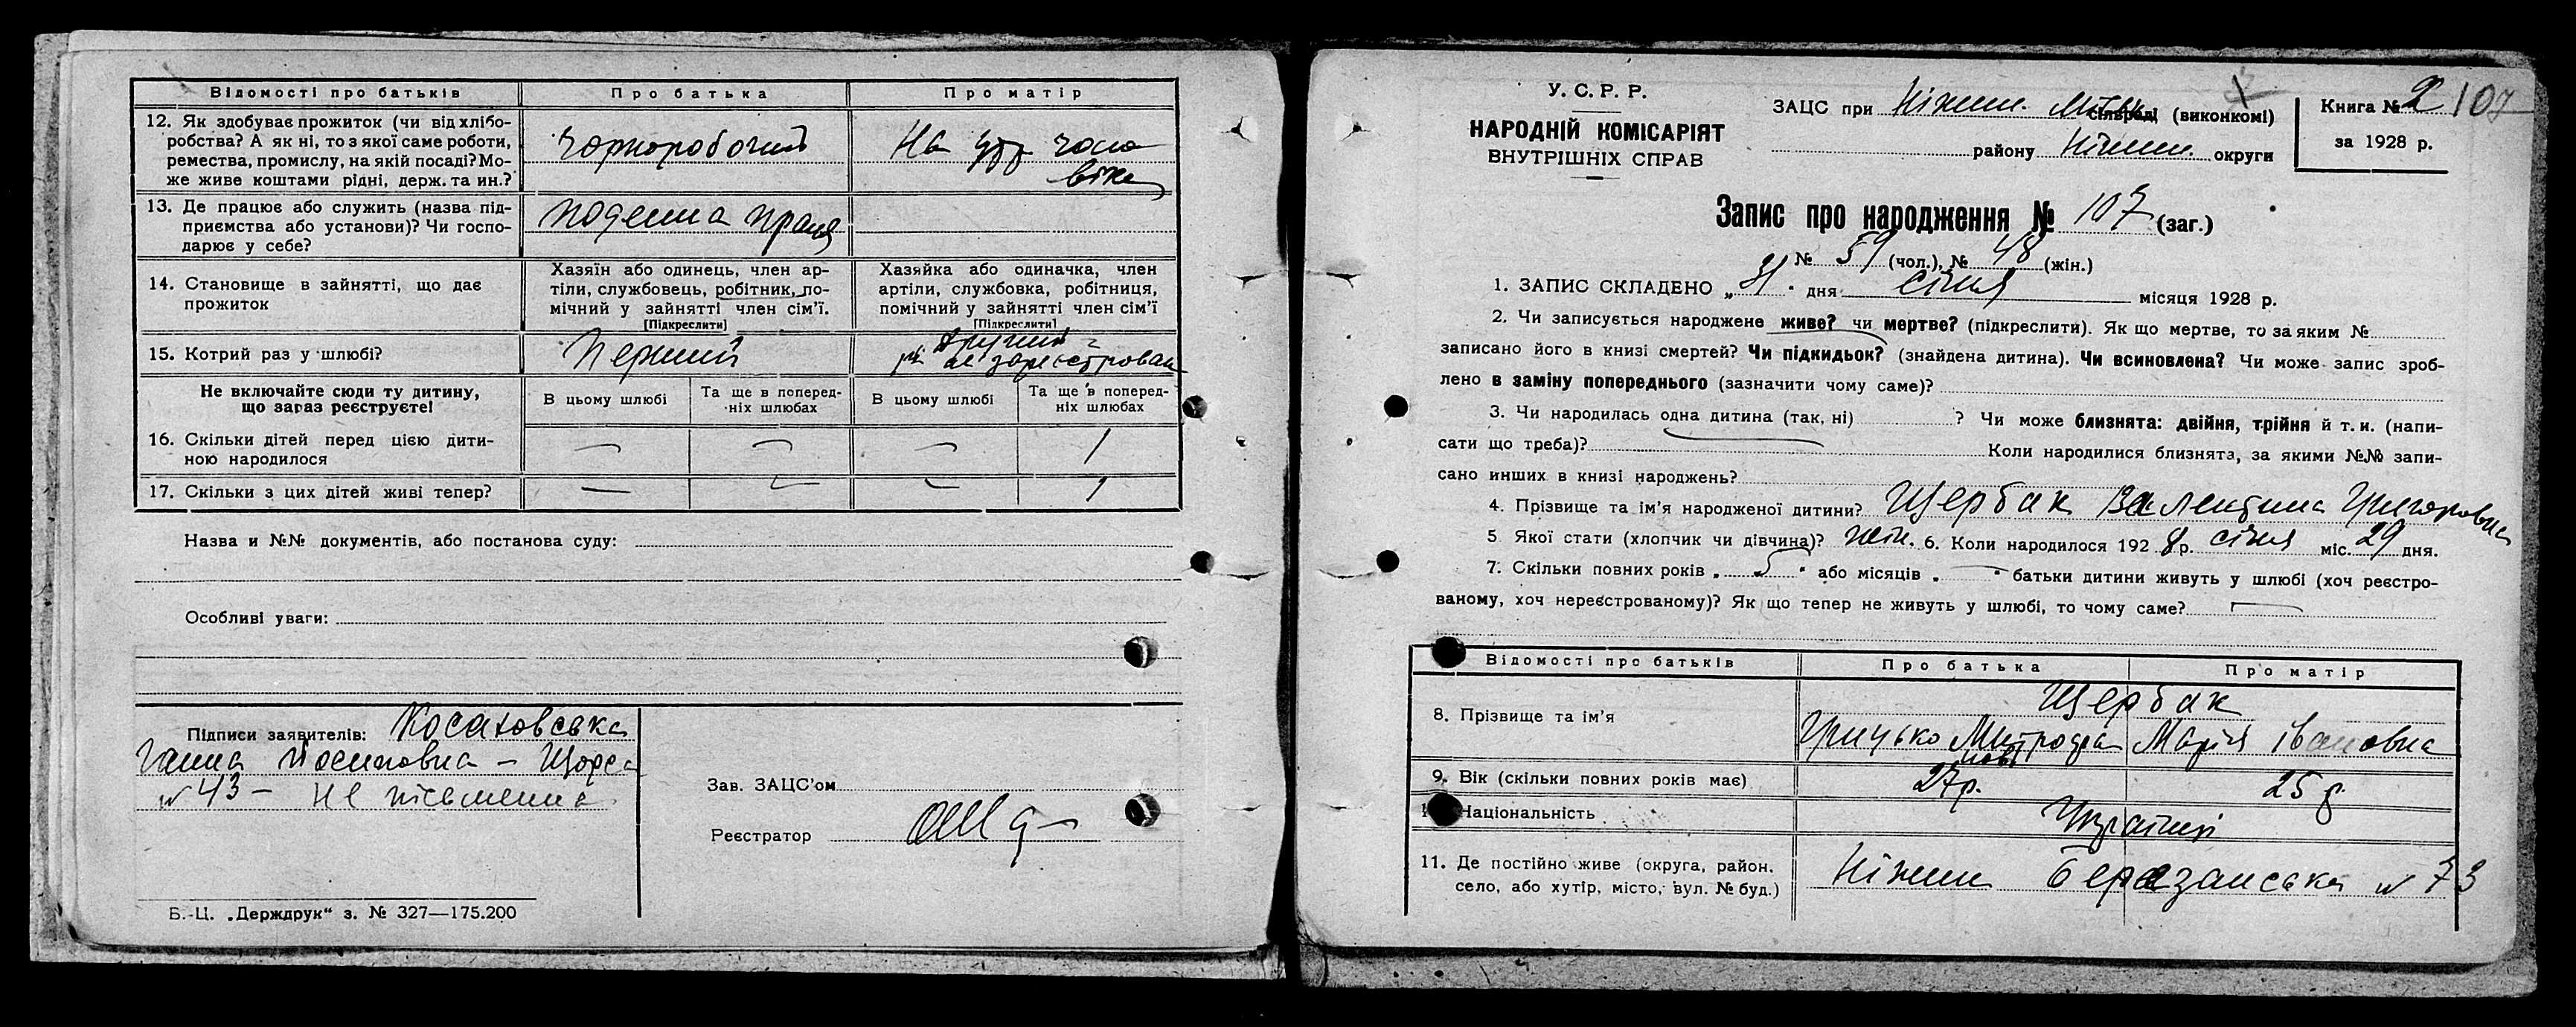 Відомості про батьків Про батька Про матір
12. Як здобуває прожиток (чи від хлібо-
робства? А як ні, то з якої саме роботи,
ремества, промислу, на якій посаді? Мо-
же живе коштами рідні, держ. та ин.?
Чорноробочий
На утр чоло
віка
13. Де працює або служить (назва під-
приємства або установи)? Чи госпо-
дарює у себе?
поденна праця
14. Становище в зайнятті, що дає
прожиток
Хазяїн або одинець, член ар-
тіли, службовець, робітник, по-
мічний у зайнятті член сім'ї.
[Підкреслити]
Хазяйка або одиначка, член
артіли, службовка, робітниця,
помічний у зайнятті член сім'ї
[Підкреслити]
15. Котрий раз у шлюбі?
Перший
другий
не зареєстрован
Не включайте сюди ту дитину,
що зараз реєструєте!
В цьому шлюбі
Та ще в поперед-
ніх шлюбах
В цьому шлюбі
Та ще в поперед-
ніх шлюбах
16. Скільки дітей перед цією дити-
ною народилося
— — — 1
17. Скільки з цих дітей живі тепер? — — — 1
Назва и №№ документів, або постанова суду:
Особливі уваги:
Підписи заявителів: Косаховська
Ганна Йосиповна – Щорса
№ 43 – не письменна
Зав. ЗАЦС'ом
Реєстратор
Б.-Ц. „Держдрук" з. № 327—175.200
У. С. Р. Р.
НАРОДНІЙ КОМІСАРІЯТ
ВНУТРІШНІХ СПРАВ
ЗАЦС при Ніжин. сільраді (виконкомі)
району Ніжин. округи
Книга № 2 107
за 1928 р.
Запис про народження № 107 (заг.)
№ 59 (чол.), № 48 (жін.)
1. ЗАПИС СКЛАДЕНО „31" дня січня місяця 1928 р.
2. Чи записується народжене живе? чи мертве? (підкреслити). Як що мертве, то за яким №
записано його в книзі смертей? Чи підкидьок? (знайдена дитина). Чи всиновлена? Чи може запис зроб-
лено в заміну попереднього (зазначити чому саме)?
3. Чи народилась одна дитина (так, ні) ? Чи може близнята: двійня, трійня й т. и. (напи-
сати що треба)? Коли народилися близнята, за якими №№ запи-
сано инших в книзі народжень?
4. Прізвище та ім'я народженої дитини? Щербак Валентина Григоровна
5 Якої стати (хлопчик чи дівчина)? жін. 6. Коли народилося 1928 р. січня міс. 29 дня.
7. Скільки повних років „ 5 " або місяців „ — " батьки дитини живуть у шлюбі (хоч реєстро-
ваному, хоч нереєстрованому)? Як що тепер не живуть у шлюбі, то чому саме? —
Відомості про батьків Про батька Про матір
8. Прізвище та ім'я
Щербак
Грицько Митрофа Марія Івановна
нові
9. Вік (скільки повних років має) 27 р. 25 р
Національність Українці
11. Де постійно живе (округа, район,
село, або хутір, місто, вул. № буд.)
Ніжин Березанська № 73